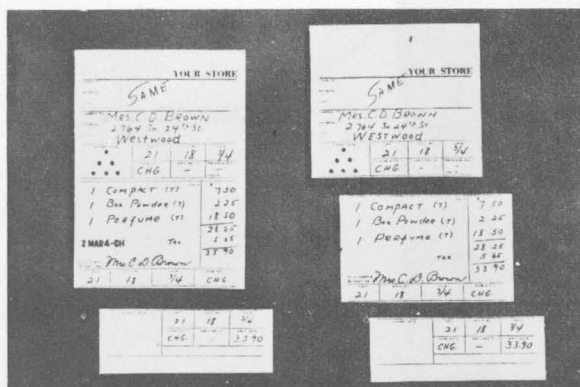 YOUR STORE
SAME
MRS. C D BROWN
2764 So 24th St.
WESTWOOD
21 18 3/4
CHG - -
1 COMPACT (T) 7 50
1 Box Powder (T) 2 25
1 PERFUME (T) 18 50
28 25
2 MAR 4-CH TAX 5 65
33 90
Mrs C. D. Brown
21 18 3/4 CHG
21 18 3/4
CHG - 33.90
YOUR STORE
SAME
MRS. C. D. BROWN
2764 So 24th St
WESTWOOD
21 18 3/4
CHG - -
1 COMPACT (T) 7 50
1 Box Powder (T) 2 25
1 PERFUME (T) 18 50
28 25
TAX 5 65
33 90
Mrs C. D. Brown
21 18 3/4 CHG
21 18 3/4
CHG - 33.90